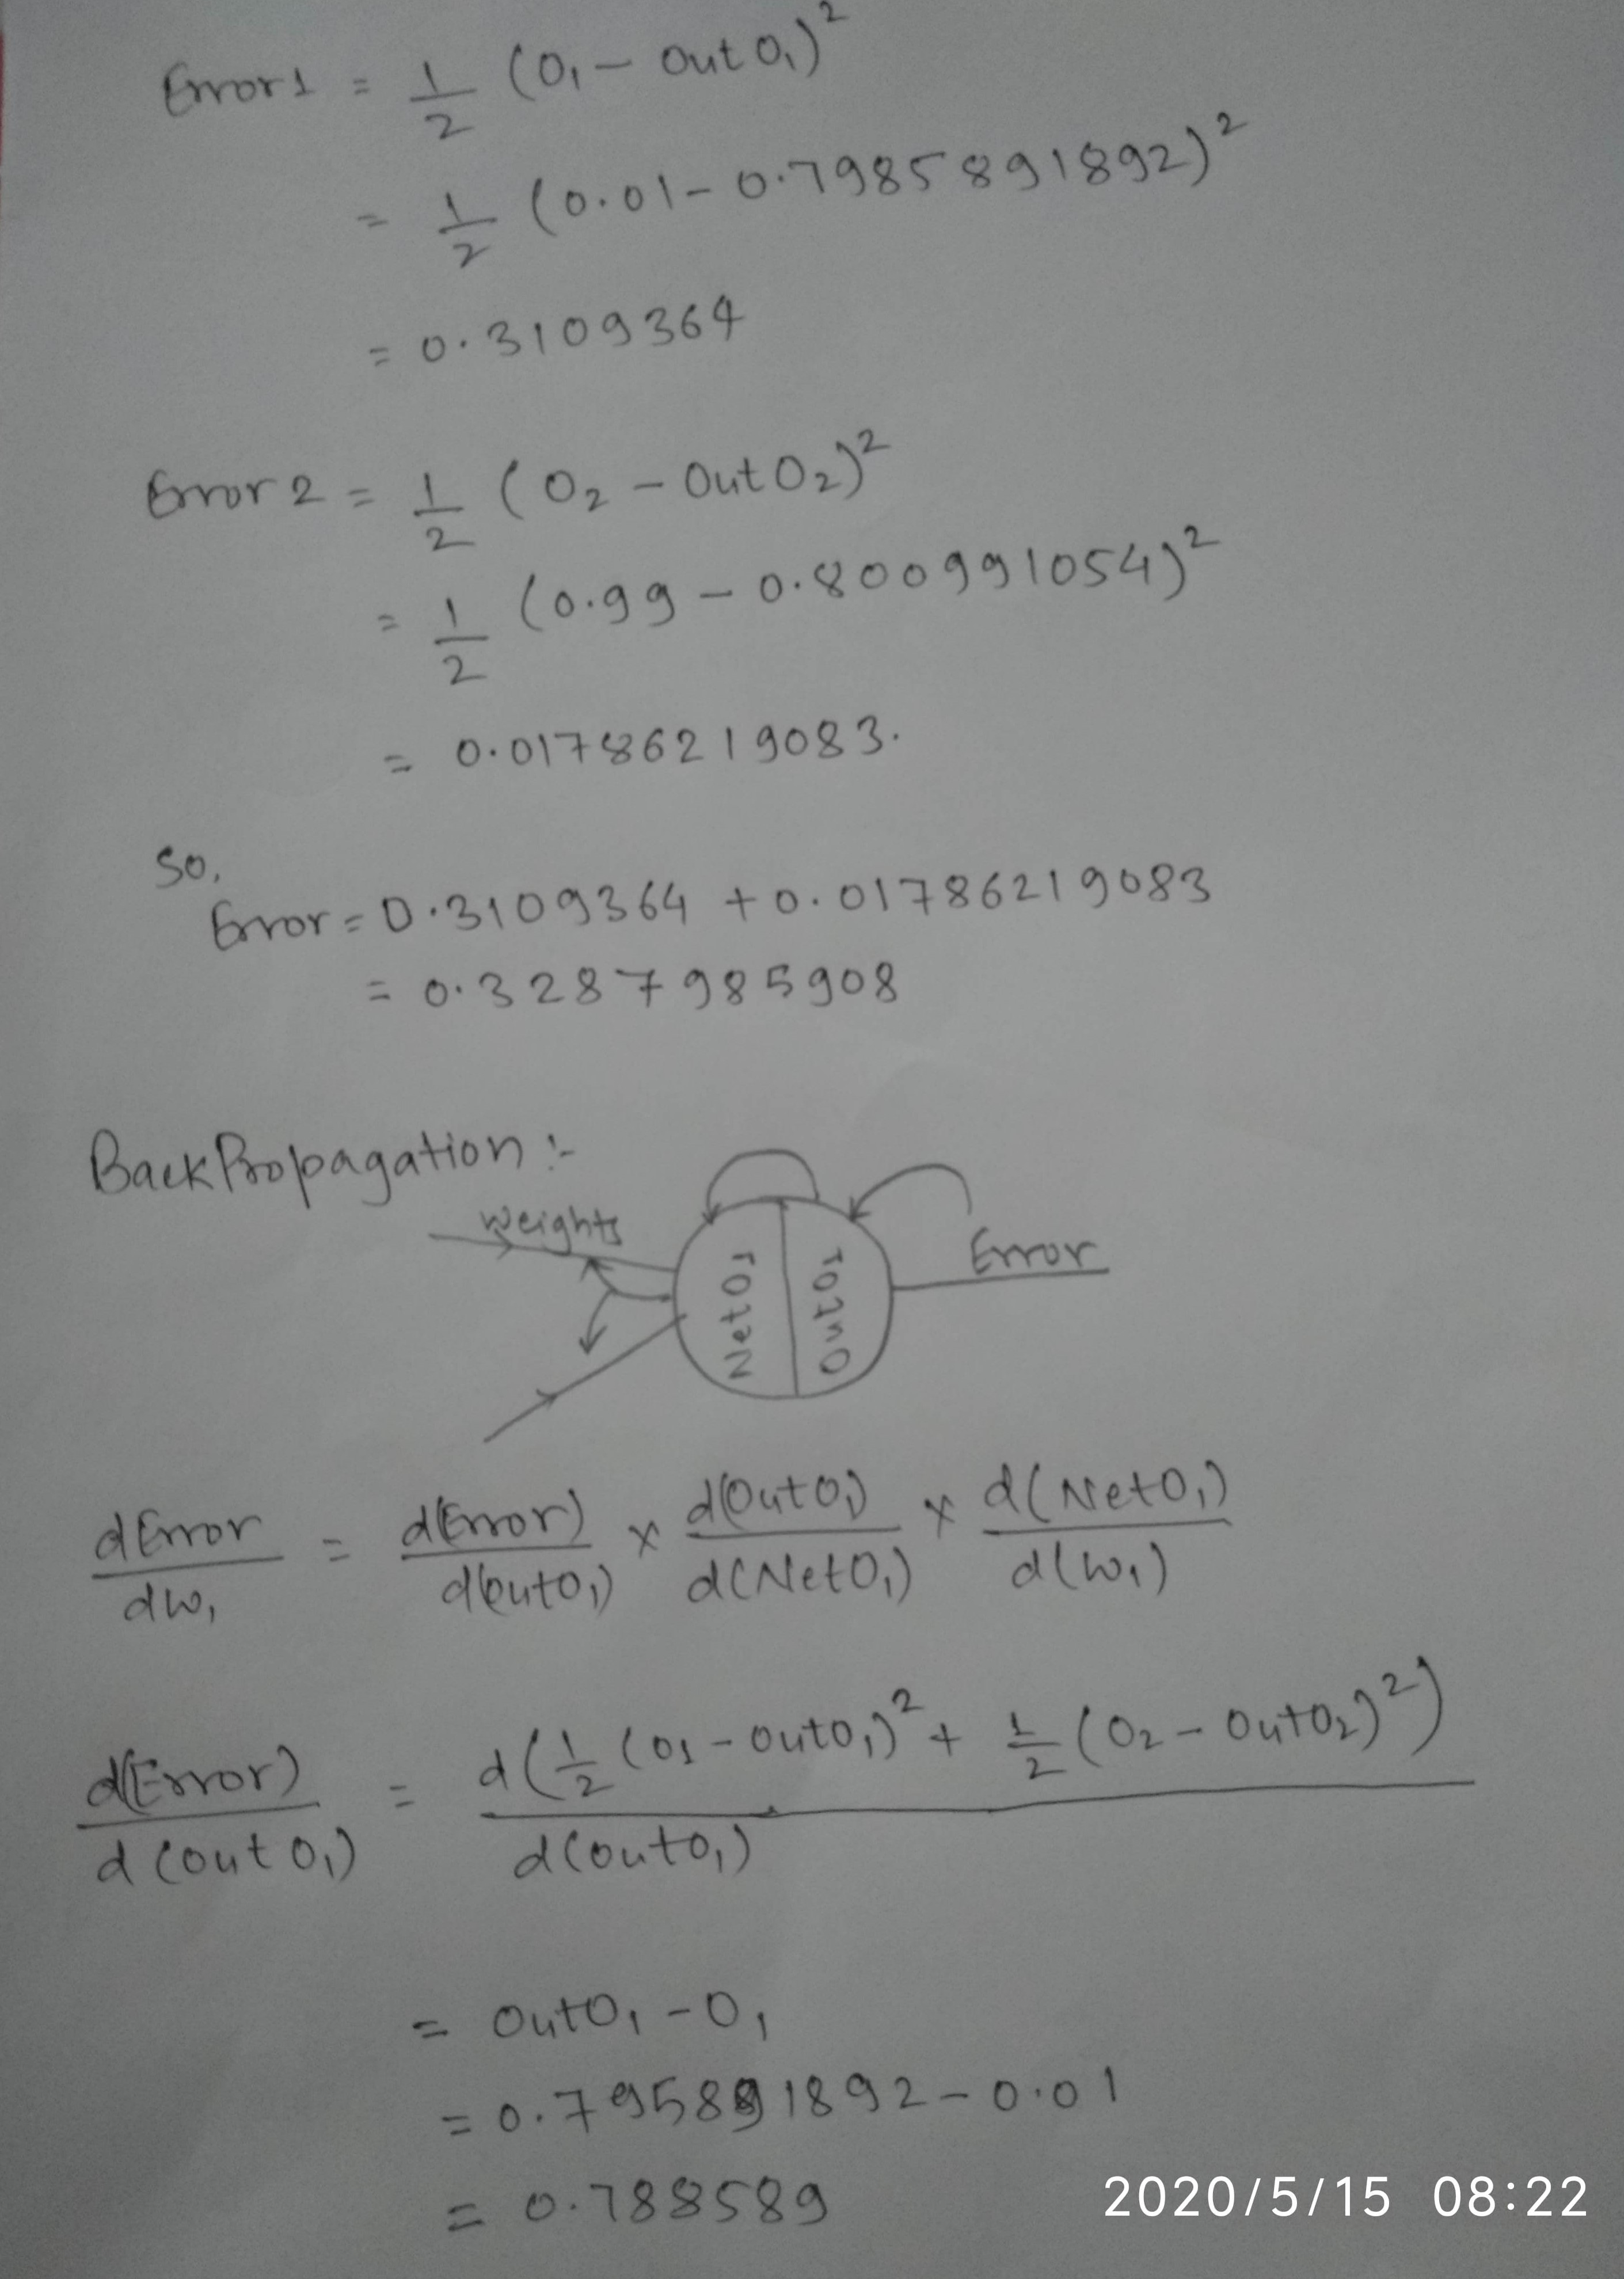 Error1 = 1/2 (O₁ - Out O₁)²
= 1/2 (0.01 - 0.7985891892)²
= 0.3109364
Error 2 = 1/2 (O₂ - Out O₂)²
= 1/2 (0.99 - 0.800991054)²
= 0.01786219083.
So,
Error = 0.3109364 + 0.01786219083
= 0.3287985908
BackPropagation :-
Weights
NetO1
OutO1
Error
dError/dw₁ = d(Error)/d(OutO₁) × d(OutO₁)/d(NetO₁) × d(NetO₁)/d(w₁)
d(Error)/d(Out O₁) = d(1/2 (O1 - OutO₁)² + 1/2 (O₂ - OutO₂)²)/d(OutO₁)
= OutO₁ - O₁
= 0.795891892 - 0.01
= 0.788589
2020/5/15 08:22